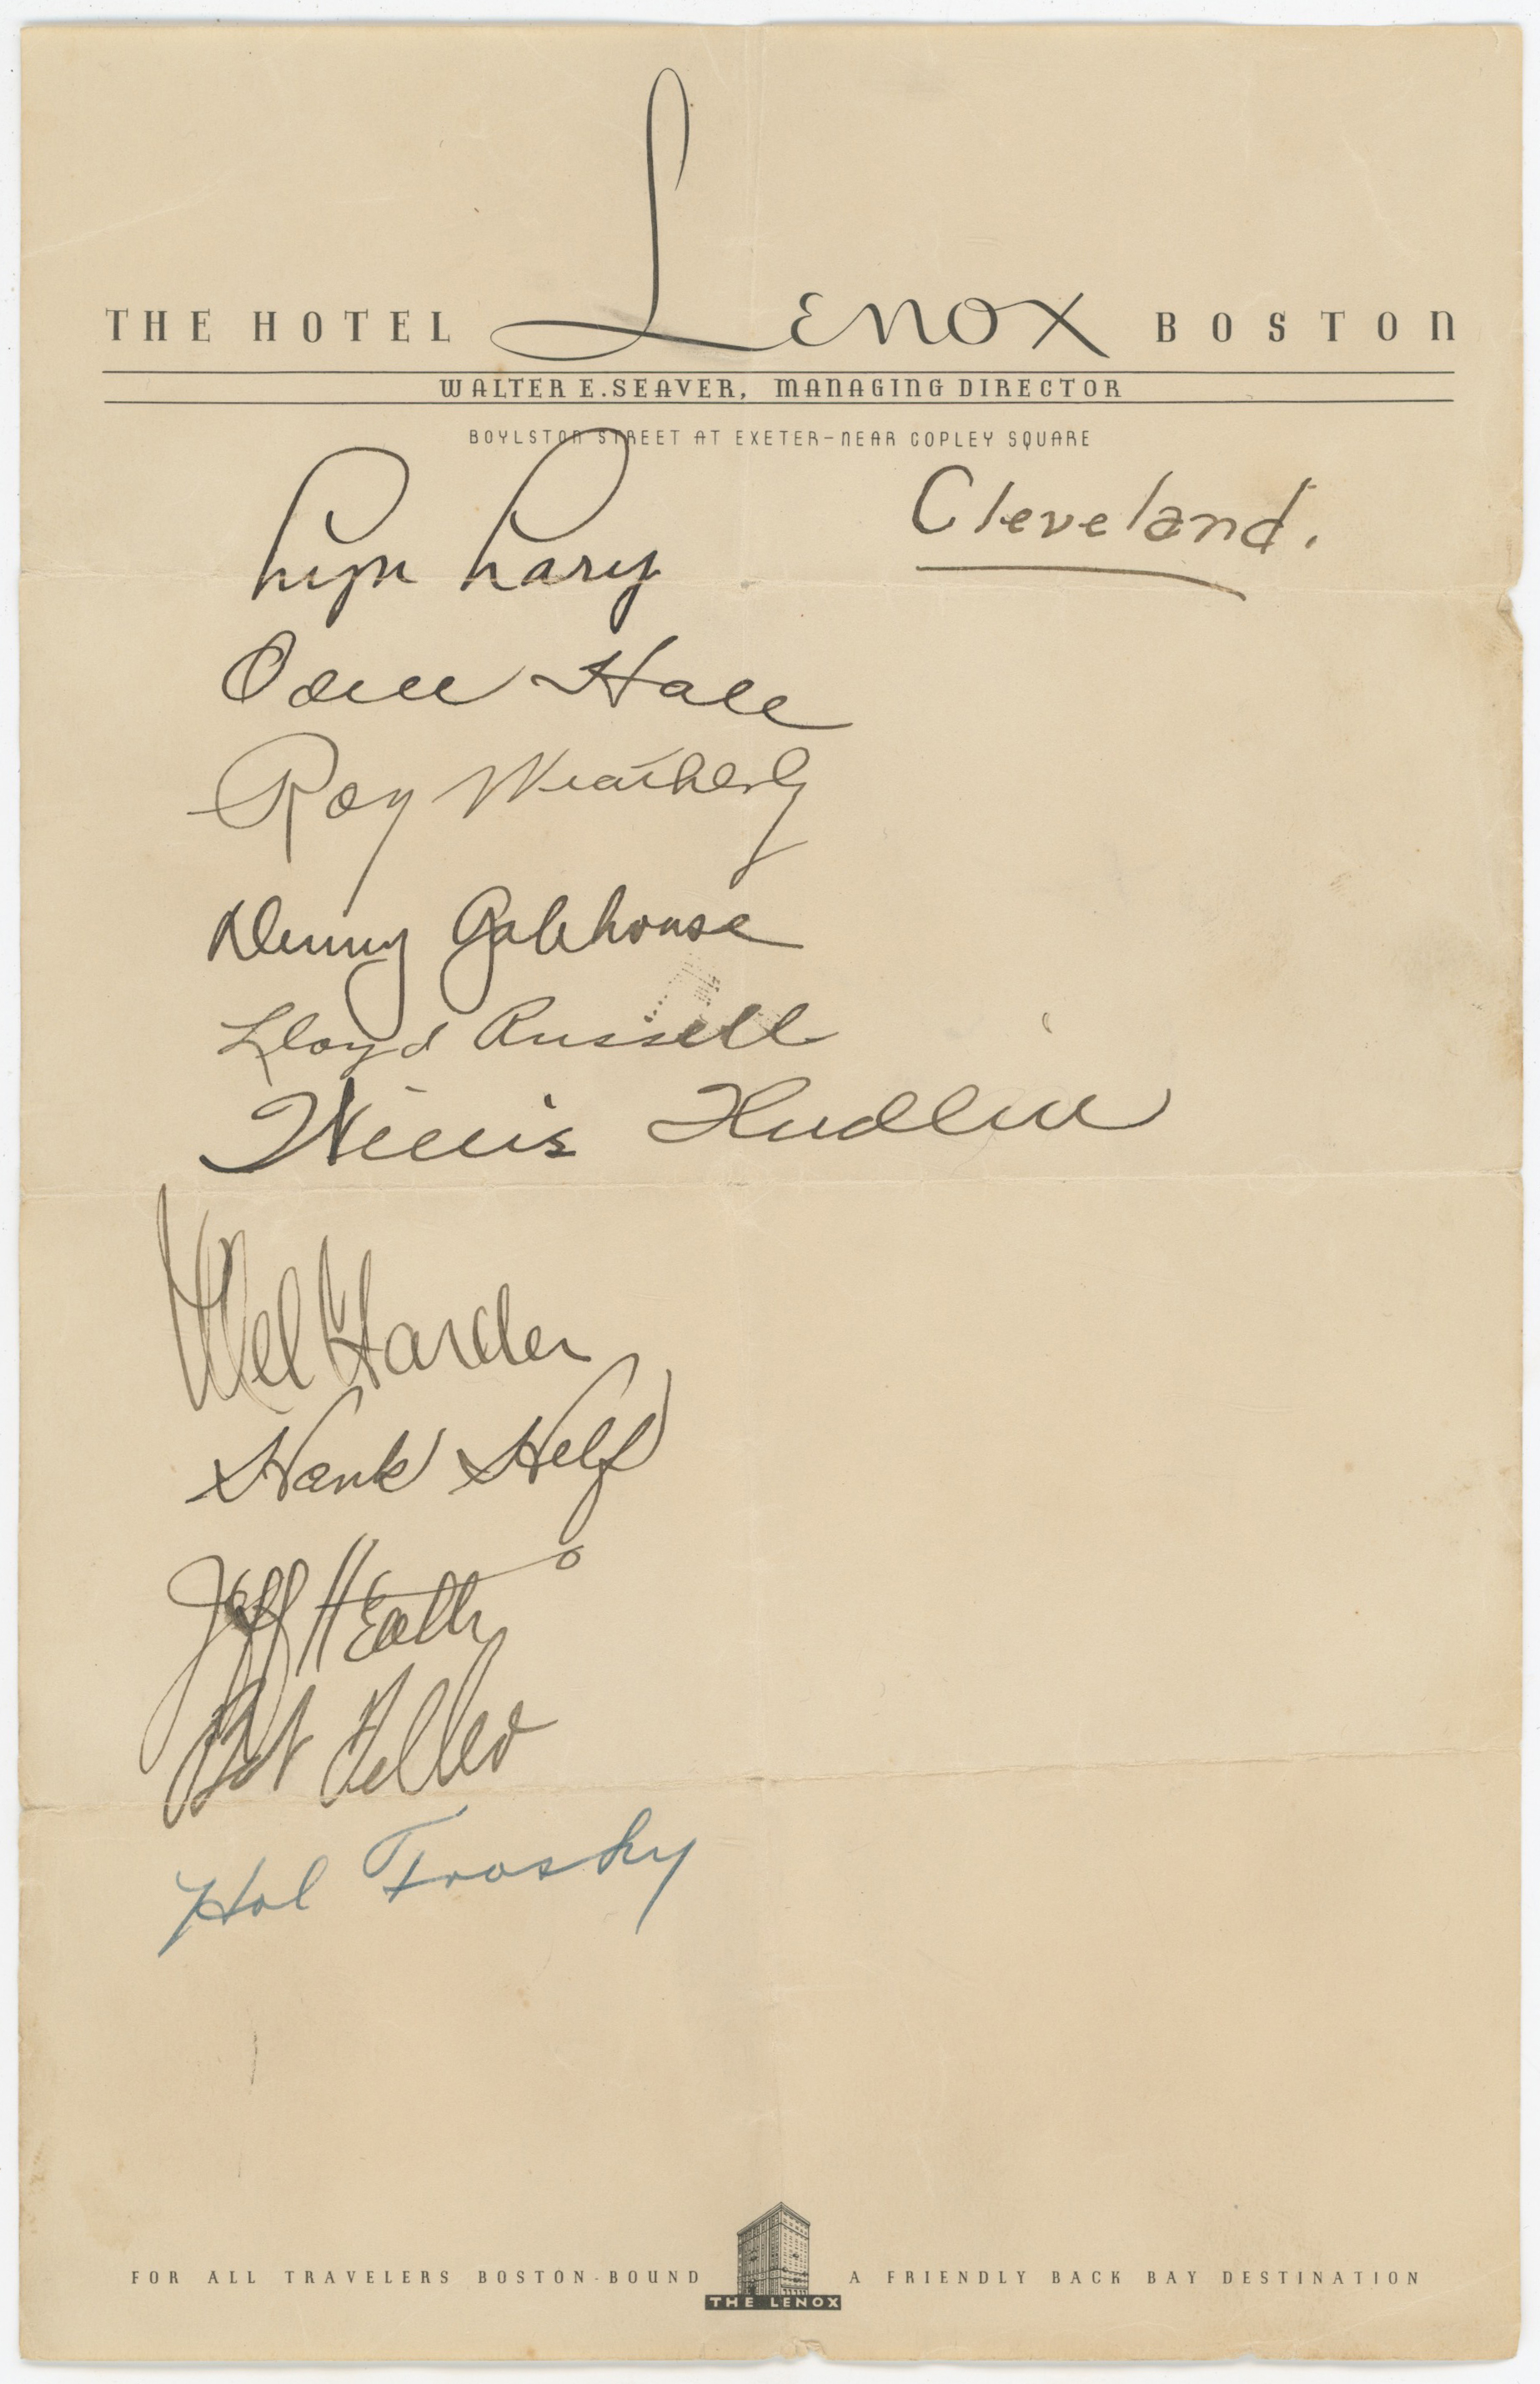 THE HOTEL Lenox BOSTON
WALTER E. SEAVER, MANAGING DIRECTOR
BOYLSTON STREET AT EXETER-NEAR COPLEY SQUARE
Cleveland.
Lyn Lary
Odell Hale
Roy Weatherly
Denny Galehouse
Lloyd Russell
Willis Hudlin
Mel Harder
Hank Helf
Jeff Heath
Bob Feller
Hal Trosky
FOR ALL TRAVELERS BOSTON-BOUND A FRIENDLY BACK BAY DESTINATION
THE LENOX